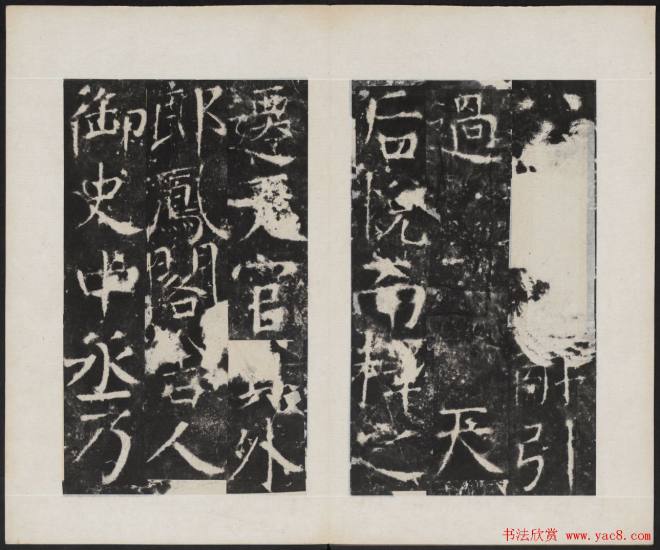 引
過天
后悅釋之
遷天官員外
郎鳳閣舍人
御史中丞乃
书法欣赏 www.yac8.com